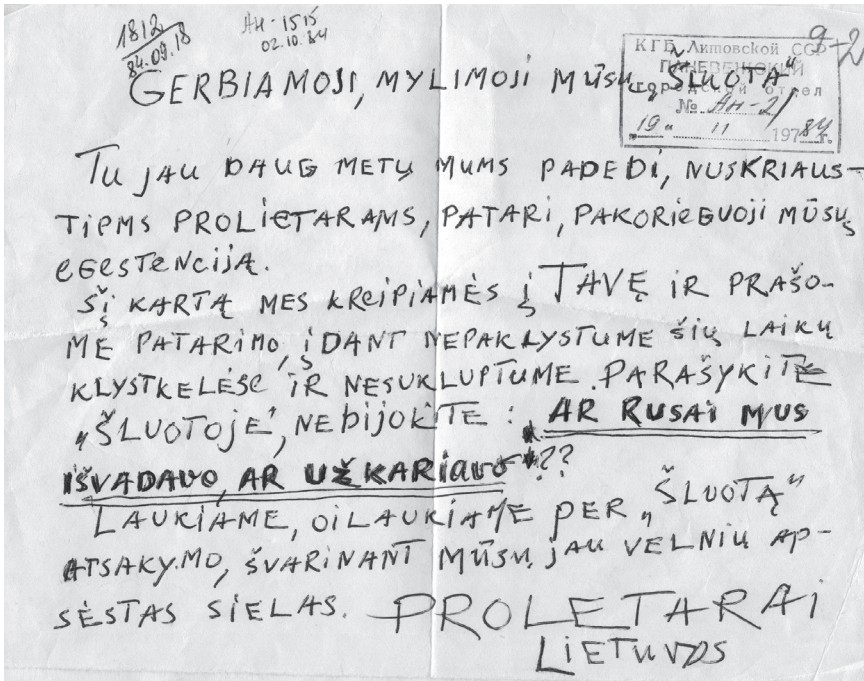 1812
84.09.18
АН-1515
02.10.84
9-2
КГБ Литовской ССР
ПАНЕВЕЖСКИЙ
городской отдел
№ АН-2/
"19" 11 1984 г.
GERBIAMOJI, MYLIMOJI MŪSŲ „ŠLUOTA"
TU JAU DAUG METŲ MUMS PADEDI, NUSKRIAUS-
TIEMS PROLIETARAMS, PATARI, PAKORIEGUOJI MŪSŲ
EGESTENCIJĄ.
ŠĮ KARTĄ MES KREIPIAMĖS Į TAVĘ IR PRAŠO-
ME PATARIMO, IDANT NEPAKLYSTUME ŠIŲ LAIKŲ
KLYSTKELĖSE IR NESUKLUPTUME. PARAŠYKITE
„ŠLUOTOJE", NEBIJOKITE: AR RUSAI MUS
IŠVADAVO, AR UŽKARIAVO ??
LAUKIAME, OI LAUKIAME PER „ŠLUOTĄ"
ATSAKYMO, ŠVARINANT MŪSŲ JAU VELNIŲ AP-
SĖSTAS SIELAS. PROLETARAI
LIETUVOS